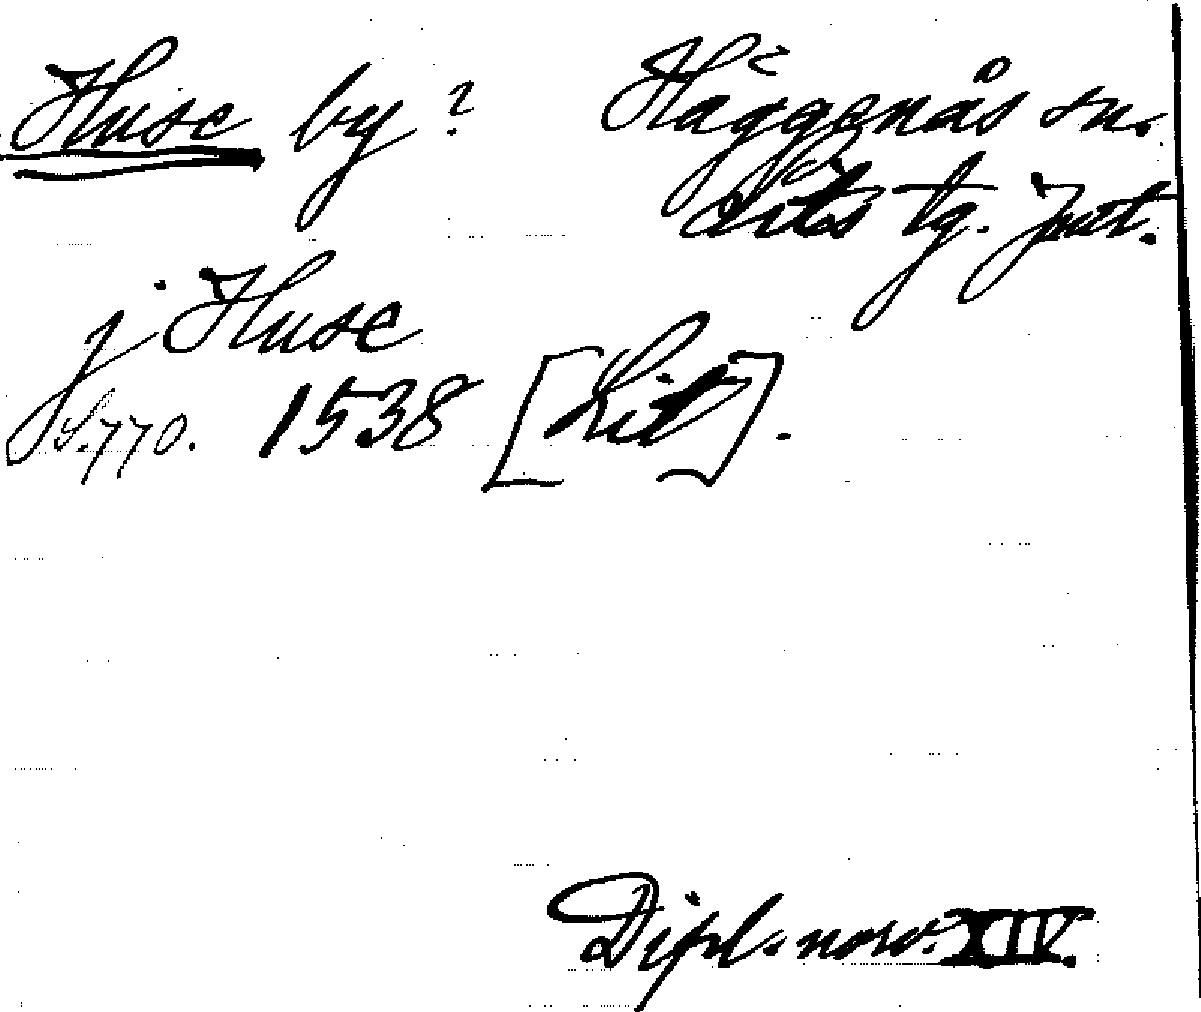 Huse by? Häggenås sn.
Lits tg. Jmt.
j Huse
S. 770. 1538 [Lit].
Dipl. norv. XIV.